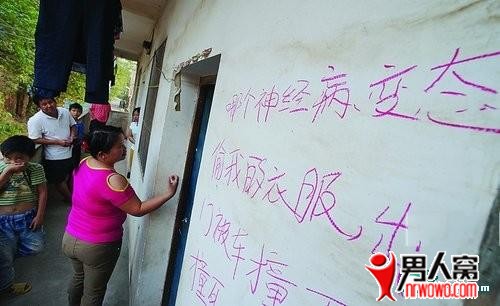 哪个神经病、变态
偷我的衣服,出
门被车撞
撞
男人窝
nrwowo.com